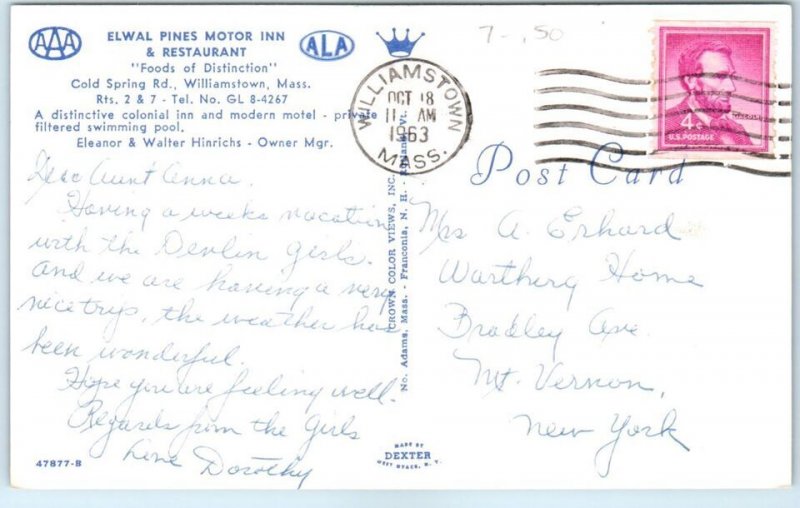 AAA
ELWAL PINES MOTOR INN
& RESTAURANT
"Foods of Distinction"
Cold Spring Rd., Williamstown, Mass.
Rts. 2 & 7 - Tel. No. GL 8-4267
A distinctive colonial inn and modern motel - private
filtered swimming pool.
Eleanor & Walter Hinrichs - Owner Mgr.
ALA
7-.50
WILLIAMSTOWN
OCT 18
11 AM
1963
MASS.
4¢
LINCOLN
U.S. POSTAGE
Post Card
Dear Aunt Anna.
Having a weeks vacation
with the Devlin girls.
and we are having a very
nice trip, the weather has
been wonderful.
Hope you are feeling well.
Regards from the Girls
Love Dorothy
CROWN COLOR VIEWS, INC.
No. Adams, Mass. - Franconia, N. H. - Vt.
Mrs A. Erhard
Wartburg Home
Bradley Ave.
Mt. Vernon,
New York
47877-B
MADE BY
DEXTER
WEST NYACK, N. Y.